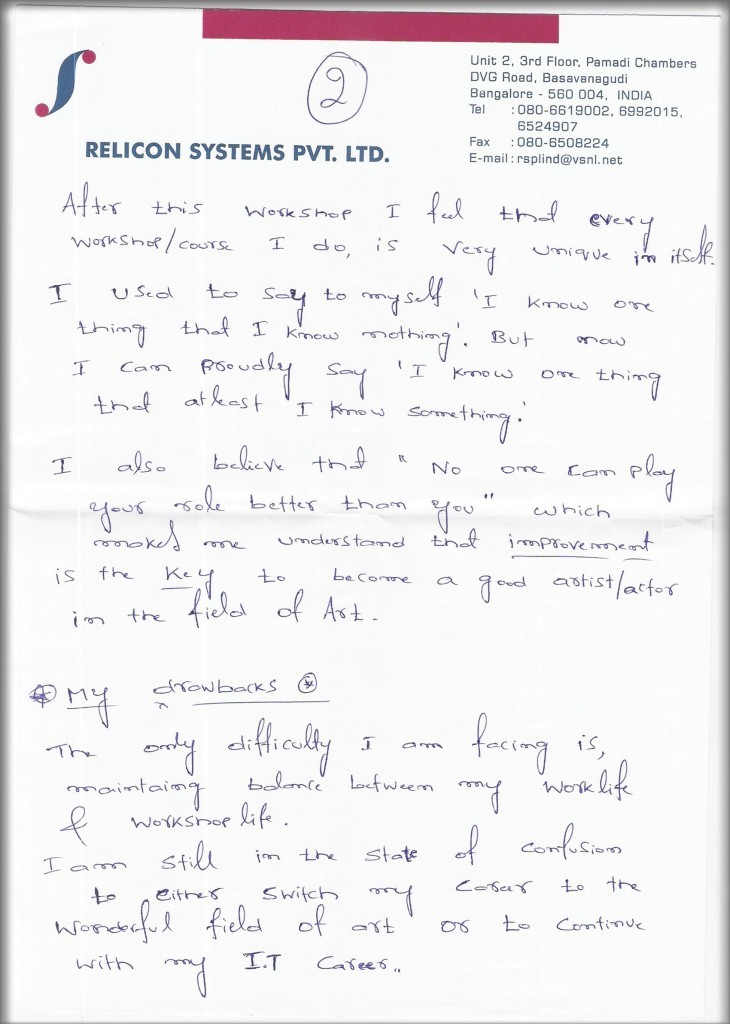 2
Unit 2, 3rd Floor, Pamadi Chambers
DVG Road, Basavanagudi
Bangalore - 560 004, INDIA
Tel : 080-6619002, 6992015,
6524907
Fax : 080-6508224
E-mail : rsplind@vsnl.net
RELICON SYSTEMS PVT. LTD.
After this workshop I feel that every
workshop/course I do, is very unique in itself.
I used to say to myself 'I know one
thing that I know nothing'. But now
I can proudly say 'I know one thing
that atleast I know something.'
I also believe that "No one can play
your role better than you" which
makes me understand that improvement
is the key to become a good artist/actor
in the field of Art.
* My drawbacks *
The only difficulty I am facing is,
maintaing balance between my work life
& workshop life.
I am still in the state of confusion
to either switch my carear to the
wonderful field of art or to continue
with my I.T Career..